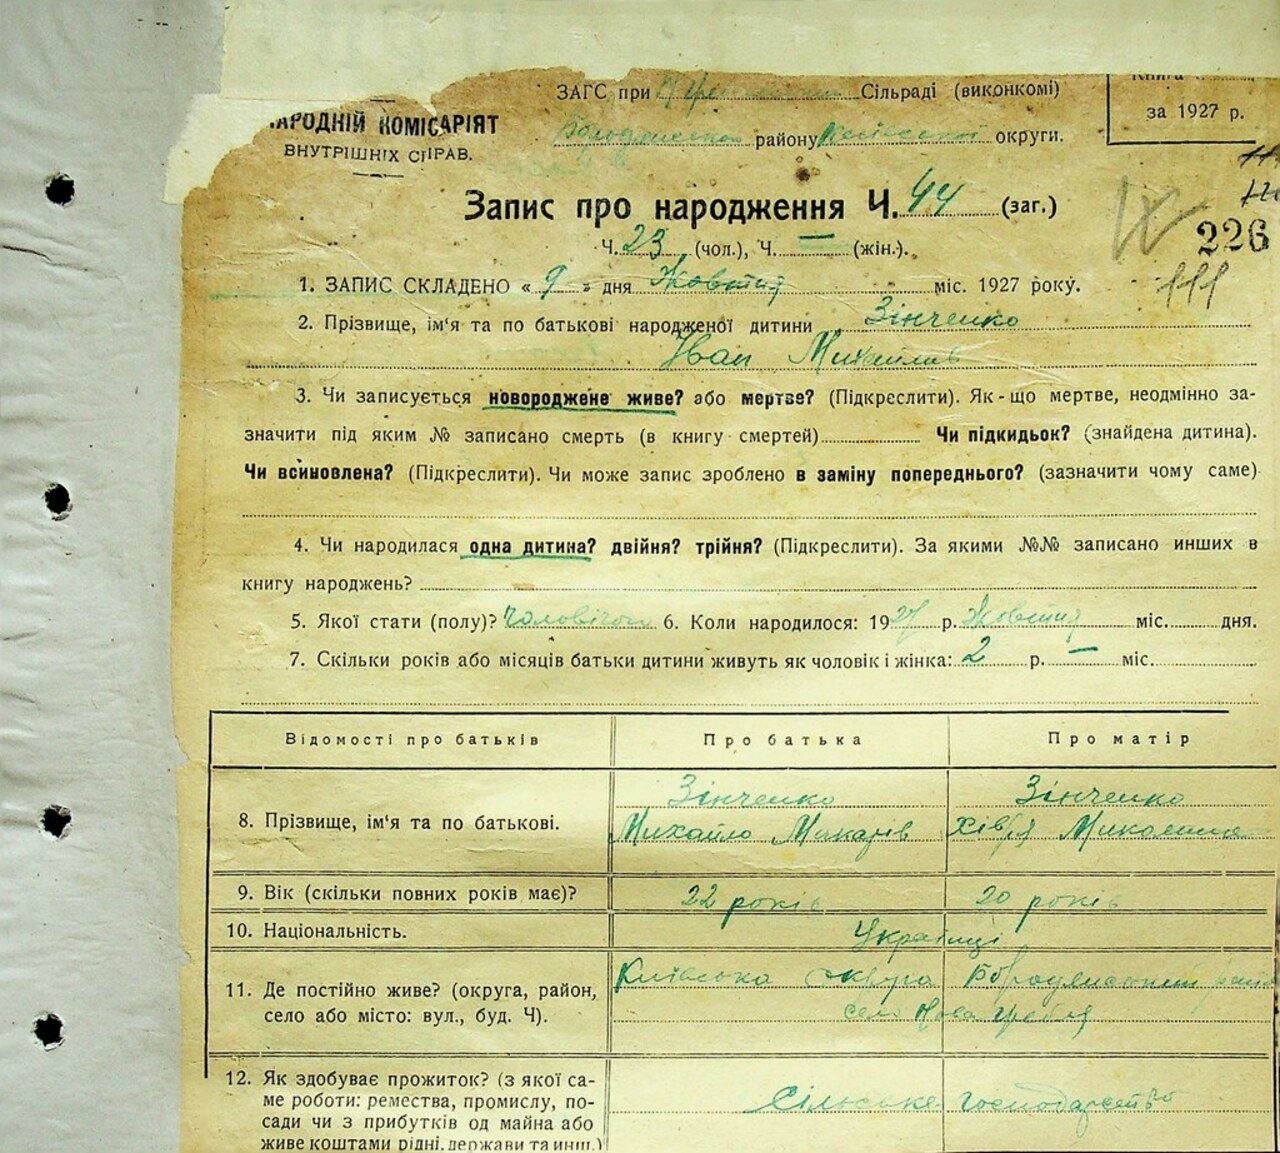 Книга ч.
ЗАГС при Сільраді (виконкомі)
за 1927 р.
НАРОДНІЙ КОМІСАРІЯТ
ВНУТРІШНІХ СПРАВ.
району Київської округи.
Запис про народження Ч. 44 (заг.)
Ч. 23 (чол.), Ч. — (жін.).
226
111
1. ЗАПИС СКЛАДЕНО « 9 » дня Жовтня міс. 1927 року.
2. Прізвище, ім'я та по батькові народженої дитини Зінченко
Іван Михайлів
3. Чи записується новороджене живе? або мертве? (Підкреслити). Як-що мертве, неодмінно за-
значити під яким № записано смерть (в книгу смертей) Чи підкидьок? (знайдена дитина).
Чи всиновлена? (Підкреслити). Чи може запис зроблено в заміну попереднього? (зазначити чому саме)
4. Чи народилася одна дитина? двійня? трійня? (Підкреслити). За якими №№ записано инших в
книгу народжень?
5. Якої стати (полу)? Чоловічої 6. Коли народилося: 1927 р. Жовтня міс. дня.
7. Скільки років або місяців батьки дитини живуть як чоловік і жінка: 2 р. — міс.
Відомості про батьків Про батька Про матір
8. Прізвище, ім'я та по батькові. Зінченко Михайло Макарів Зінченко Хівря
9. Вік (скільки повних років має)? 22 років 20 років
10. Національність. Українці
11. Де постійно живе? (округа, район, Київська округа район
село або місто: вул., буд. Ч). село гребля
12. Як здобуває прожиток? (з якої са-
ме роботи: ремества, промислу, по- Сільське господарство
сади чи з прибутків од майна або
живе коштами рідні, держави та инш.)